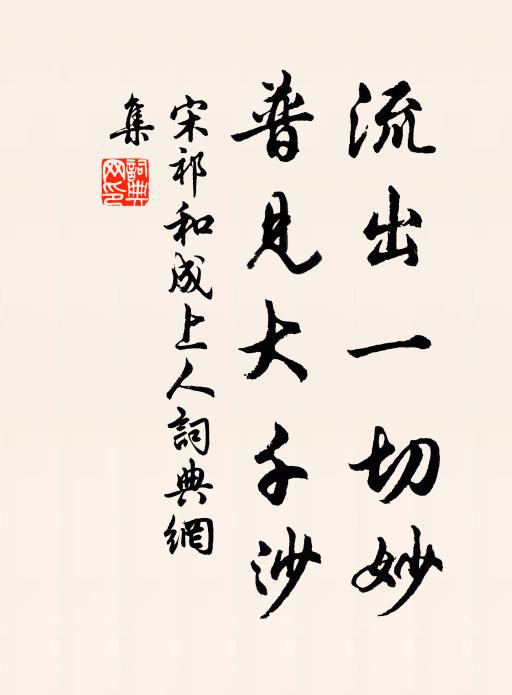 流出一切妙
普見大千沙
宋祁和成上人詞典網
集
詞典网印